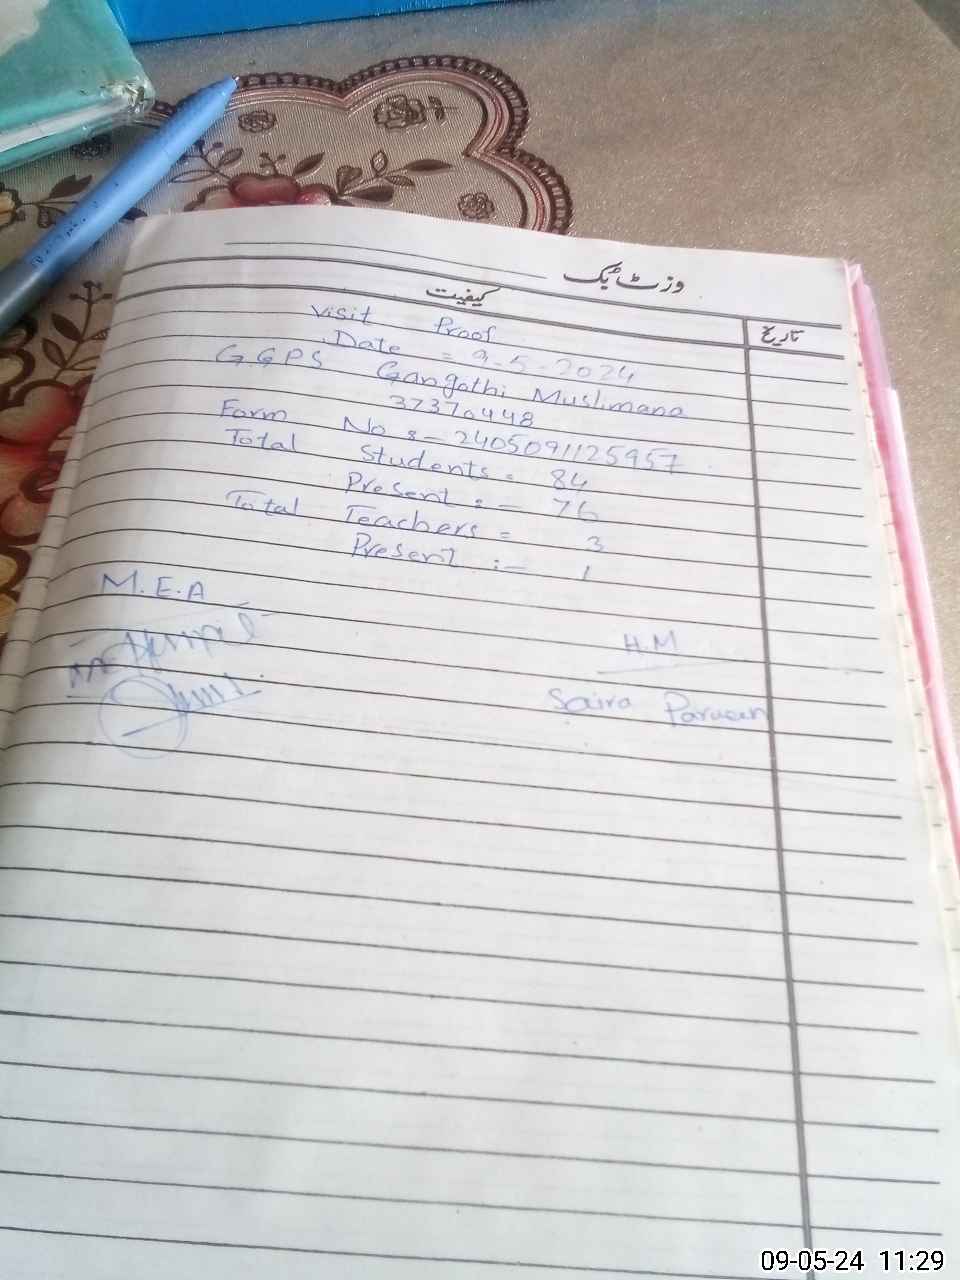 وزٹ بک
کیفیت
تاریخ
Visit Proof
Date = 9-5-2024
GGPS Gangothi Muslimana
37370448
Form No :- 2405091125957
Total Students = 84
Present :- 76
Total Teachers = 3
Present :- 1
M.E.A
H.M
Saira Parveen
09-05-24 11:29